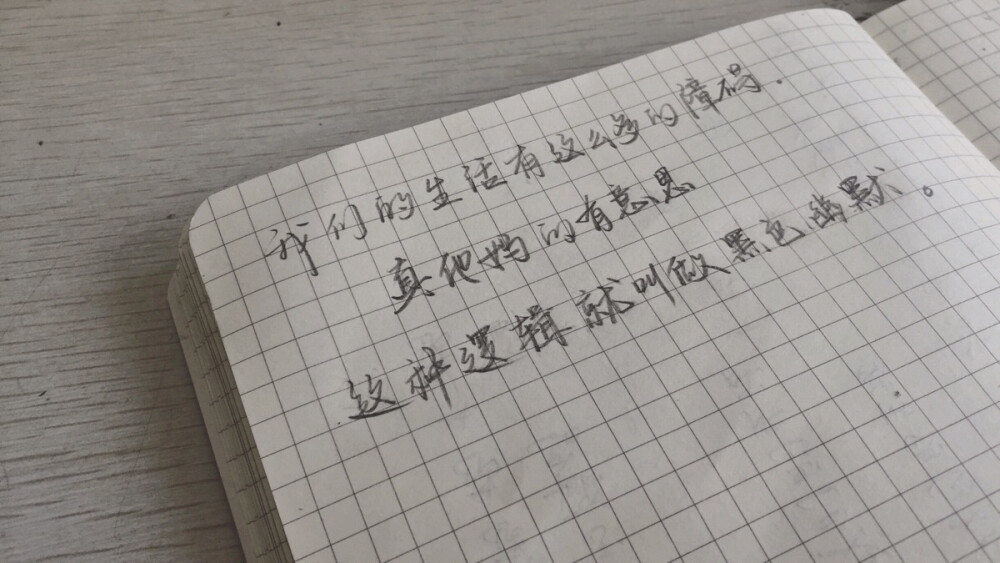 我们的生活有这么多的障碍.
真他妈的有意思
这种逻辑就叫做黑色幽默。